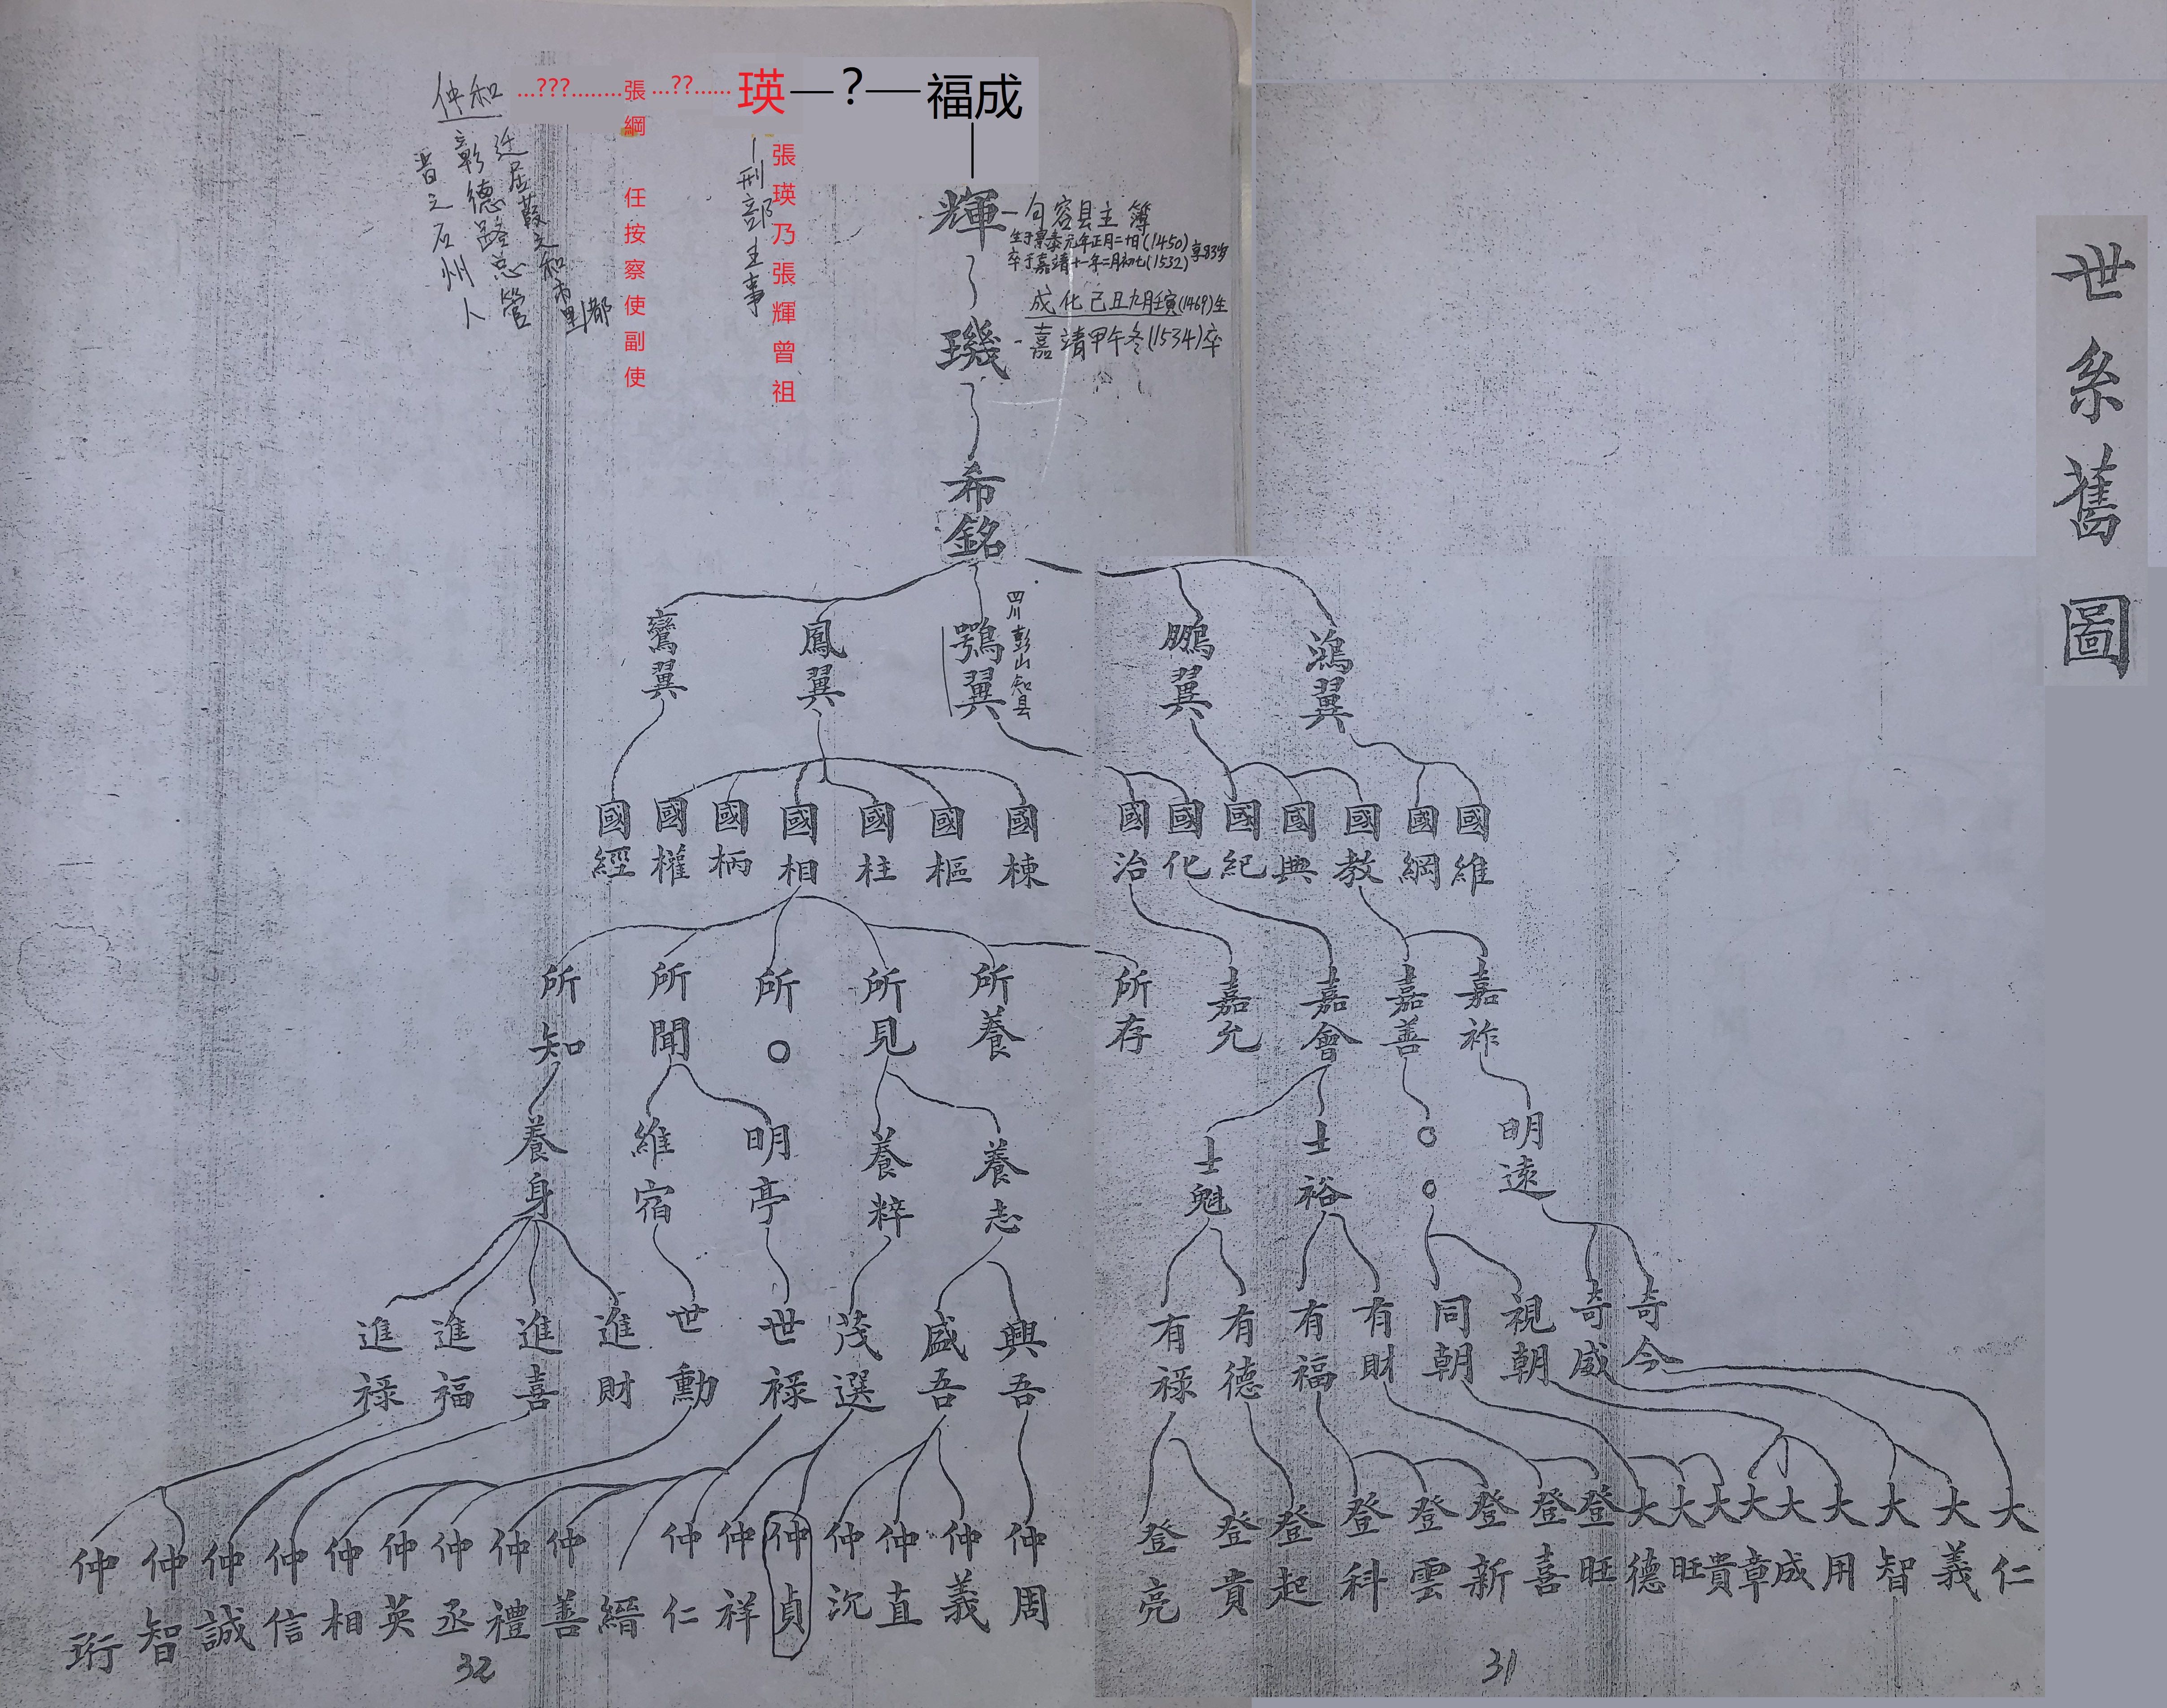 世系舊圖
福成
—?—
瑛
...??......
張綱 任按察使副使
...???........
仲和
張瑛乃張輝曾祖
刑部主事
迁居葭之和市里
彰德路总管
晋之石州人
輝
句容县主簿
生于景泰元年正月二十日(1450)
卒于嘉靖十一年二月初七(1532)
享83岁
璣
成化己丑九月壬寅(1469)生
嘉靖甲午冬(1534)卒
希銘
鴻翼
鵬翼
鶚翼
四川彭山知县
鳳翼
鸞翼
國維
國綱
國教
國典
國紀
國化
國治
國棟
國樞
國柱
國相
國柄
國權
國經
嘉祚
嘉善
嘉會
嘉允
所存
所養
所見
所○
所聞
所知
明遠
○○
士裕
士魁
養志
養粹
明亭
維宿
養身
奇今
奇威
視朝
同朝
有財
有福
有德
有禄
興吾
盛吾
茂選
世禄
世勳
進財
進喜
進福
進禄
大仁
大義
大智
大用
大成
大章
大貴
大旺
大德
登旺
登喜
登新
登雲
登科
登起
登貴
登亮
仲周
仲義
仲直
仲沉
仲貞
仲祥
仲仁
縉
仲善
仲禮
仲丞
仲英
仲相
仲信
仲誠
仲智
仲珩
31
32